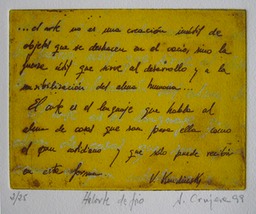 ...el arte no es una creación inútil de
objetos que se deshacen en el vacío, sino la
fuerza útil que sirve al desarrollo y a la
sensibilización del alma humana...
El arte es el lenguaje que habla al
alma de cosas que son para ella como
el pan cotidiano y que sólo puede recibir
en esta forma.
V. Kandinsky